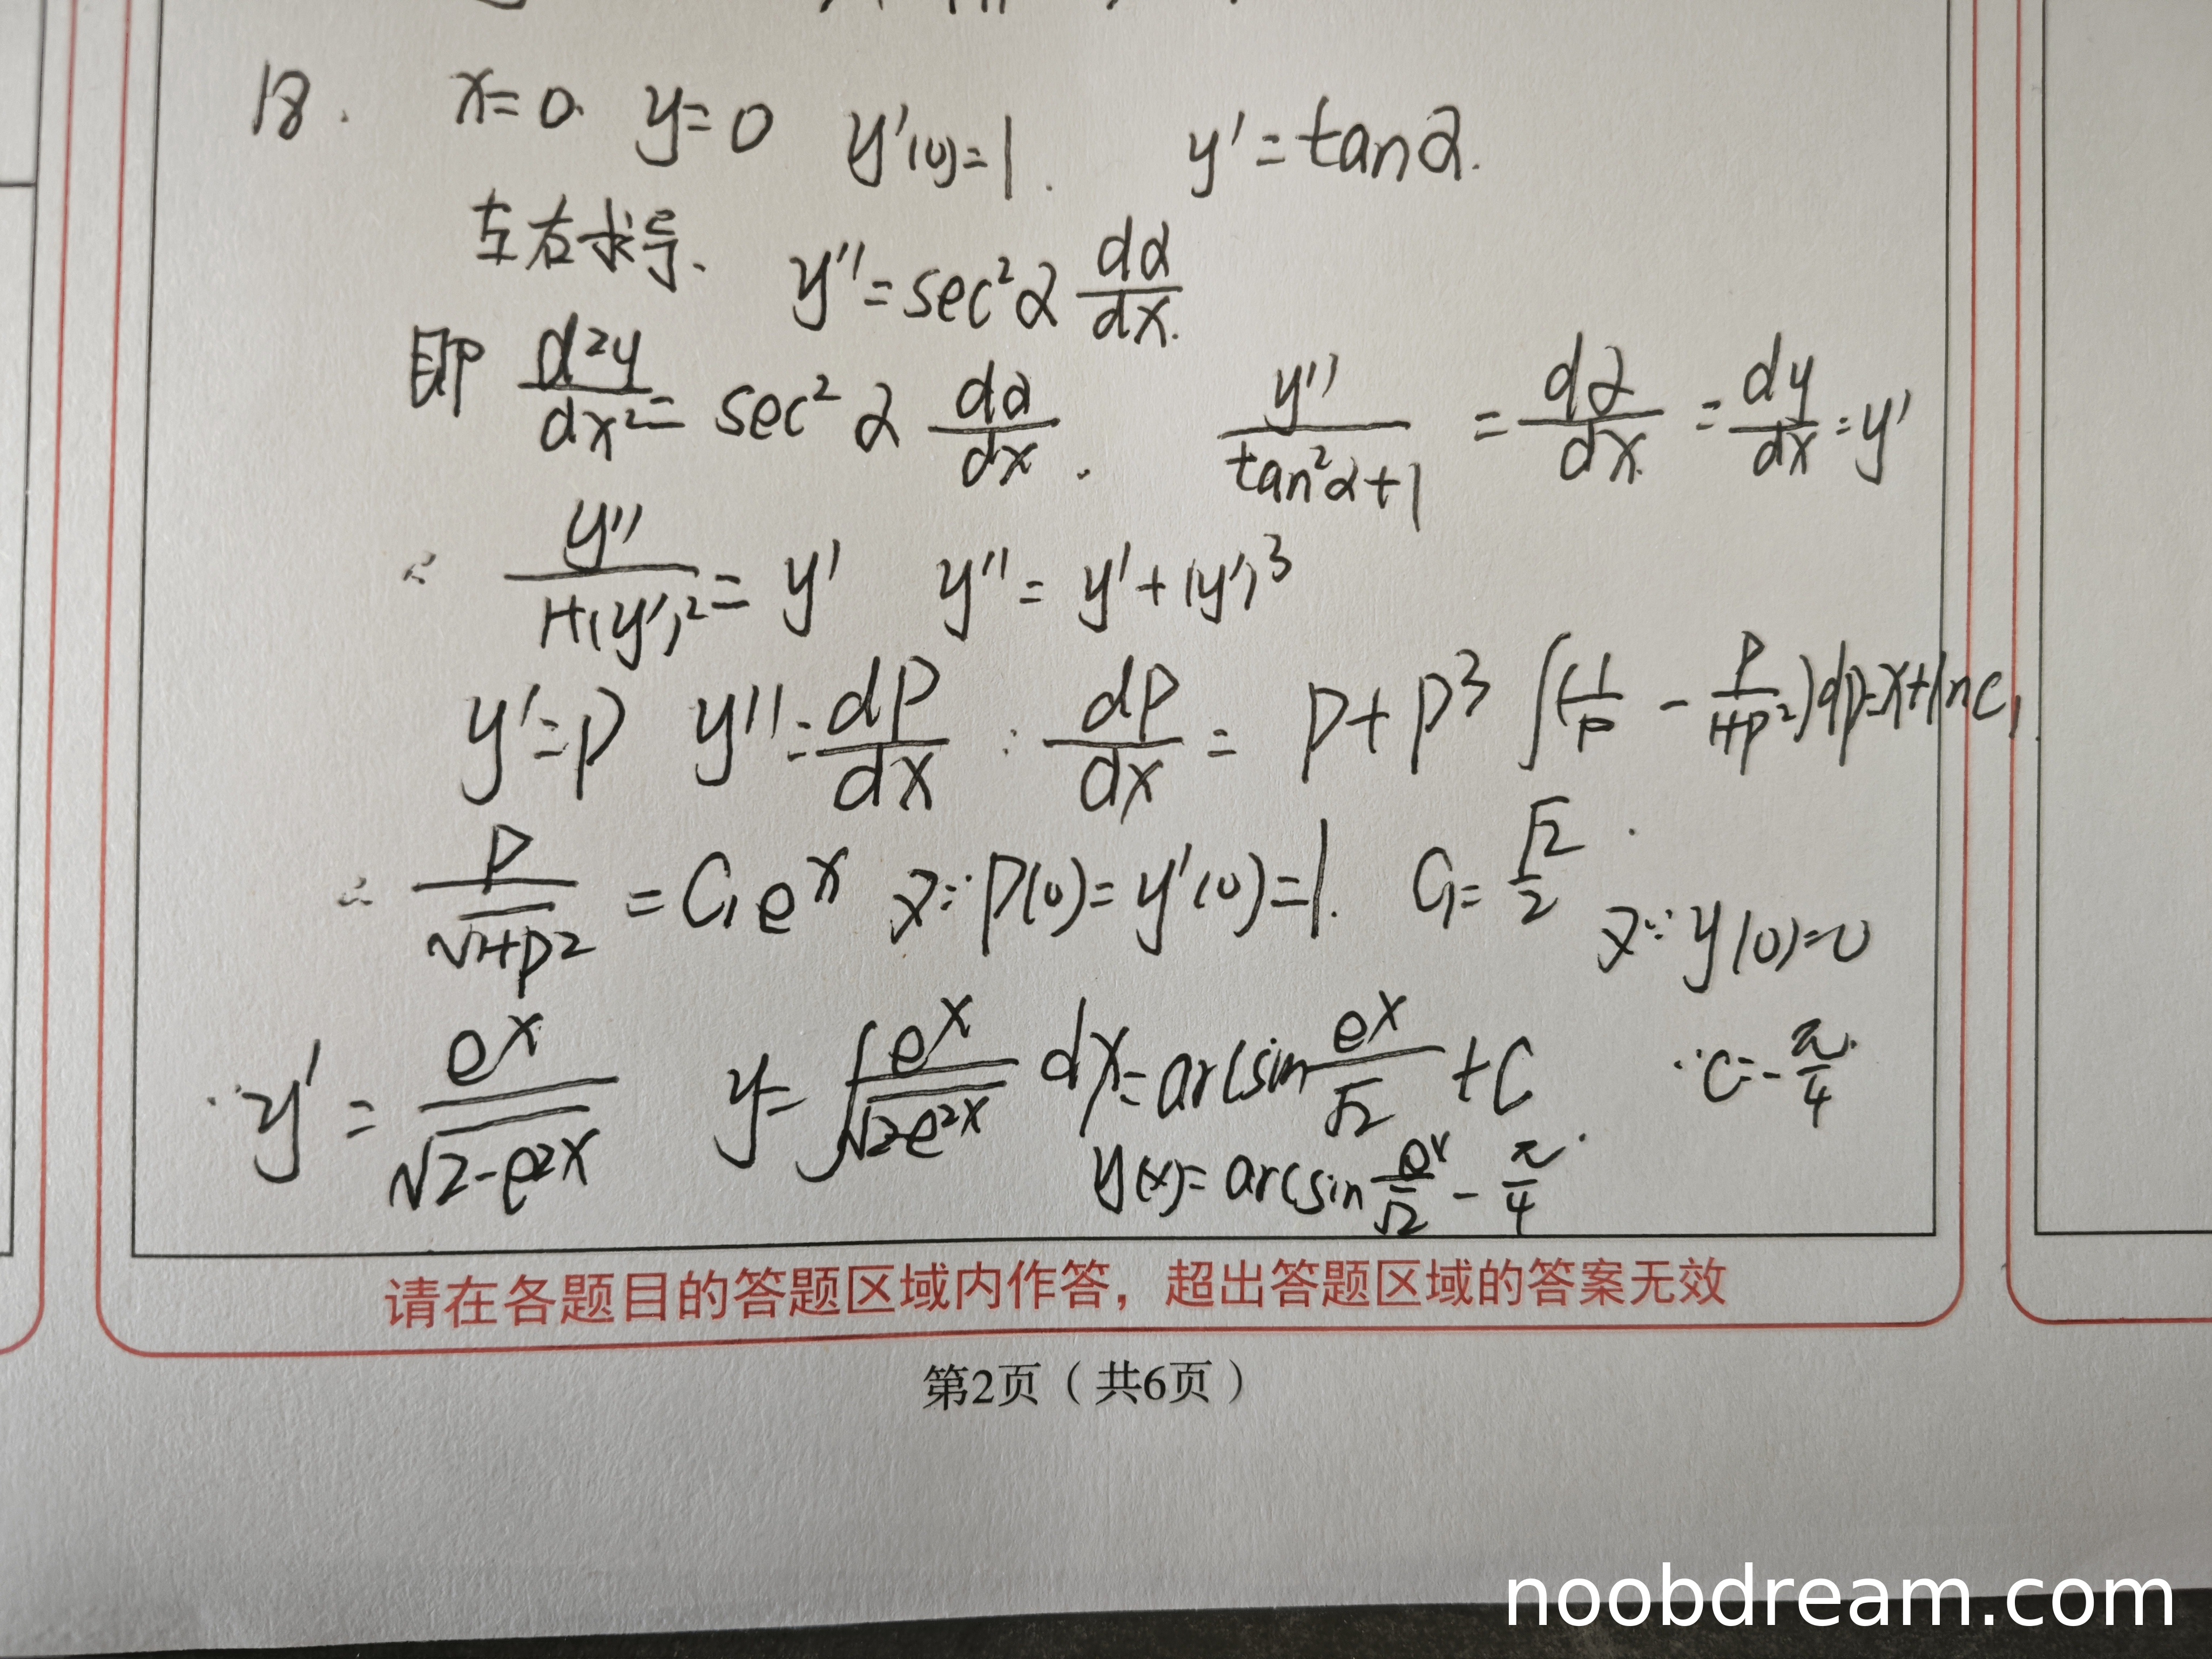 18. x=0. y=0 y'(0)=1. y'=tanα.
左右求导. y''=sec²α dα/dx.
即 d²y/dx²=sec²α dα/dx. y''/(tan²α+1)=dα/dx=dy/dx=y'
∴ y''/(1+(y')²)=y' y''=y'+(y')³
y'=p y''=dp/dx ∴ dp/dx=p+p³ ∫(1/p-p/(1+p²))dp=x+lnC₁
∴ p/√(1+p²)=C₁eˣ 又∵p(0)=y'(0)=1. C₁=√2/2. 又∵y(0)=0
∴y'=eˣ/√(2-e²ˣ) y=∫eˣ/√(2-e²ˣ) dx=arcsin eˣ/√2+C ∴C=-π/4.
y(x)=arcsin eˣ/√2-π/4.
请在各题目的答题区域内作答，超出答题区域的答案无效
第2页（共6页）
noobdream.com